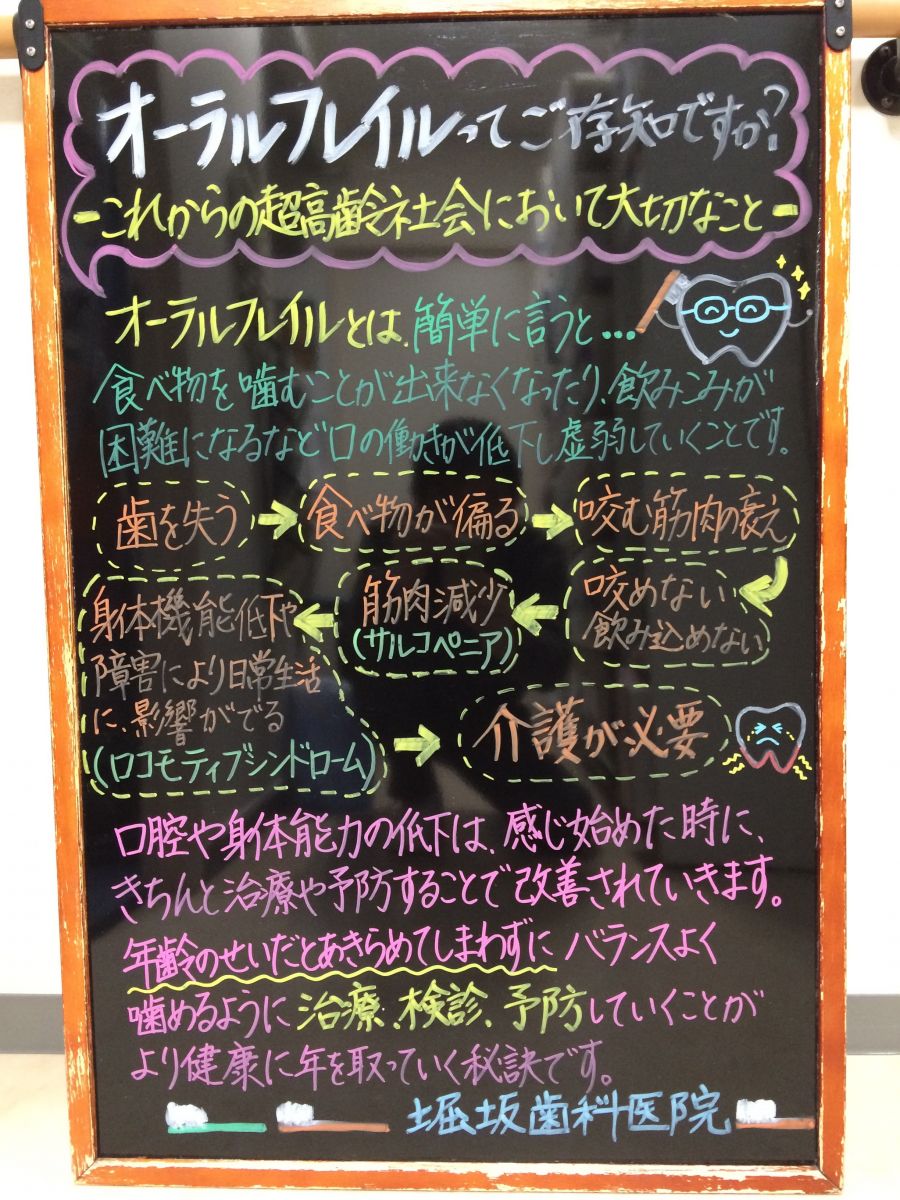 オーラルフレイルってご存知ですか?
-これからの超高齢社会において大切なこと-
オーラルフレイルとは、簡単に言うと…
食べ物を噛むことが出来なくなったり、飲みこみが
困難になるなど口の働きが低下し虚弱していくことです。
歯を失う → 食べ物が偏る → 咬む筋肉の衰え
咬めない
飲み込めない
筋肉減少
(サルコペニア)
身体機能低下や
障害により日常生活
に、影響がでる
(ロコモティブシンドローム)
→ 介護が必要
口腔や身体能力の低下は、感じ始めた時に、
きちんと治療や予防することで改善されていきます。
年齢のせいだとあきらめてしまわずに バランスよく
噛めるように治療、検診、予防していくことが
より健康に年を取っていく秘訣です。
堀坂歯科医院